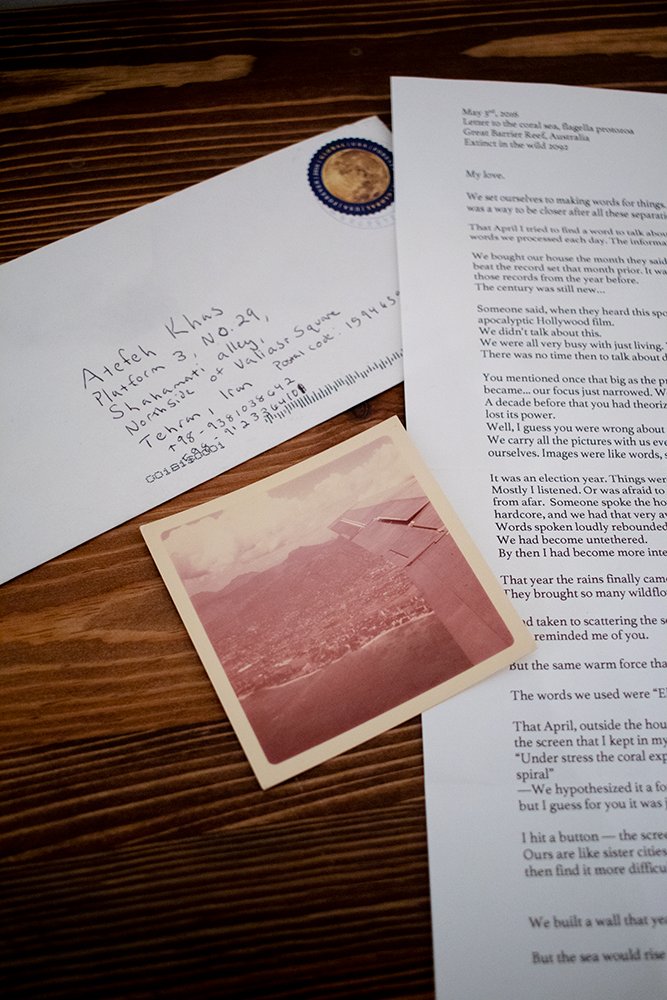 Atefeh Khas
Platform 3, No. 29,
Shahamati alley,
Northside of Valiasr Square
Tehran, Iran Postal code:
+98-9381038642
001813
May 3rd, 2016
Letter to the coral sea, flagella protozoa
Great Barrier Reef, Australia
Extinct in the wild 2092
My love.
We set ourselves to making words for things.
was a way to be closer after all these
That April I tried to find a word to talk
words we processed each day. The
We bought our house the month they said
beat the record set that month prior. It
those records from the year before.
The century was still new...
Someone said, when they heard this
apocalyptic Hollywood film.
We didn't talk about this.
We were all very busy with just living.
There was no time then to talk about
You mentioned once that big as the
became... our focus just narrowed.
A decade before that you had
lost its power.
Well, I guess you were wrong about
We carry all the pictures with us
ourselves. Images were like words,
It was an election year. Things were
Mostly I listened. Or was afraid to
from afar. Someone spoke the
hardcore, and we had that very
Words spoken loudly rebounded
We had become untethered.
By then I had become more
That year the rains finally came
They brought so many
taken to scattering the
reminded me of you.
But the same warm force
The words we used were
That April, outside the
the screen that I kept in my
"Under stress the coral
spiral"
—We hypothesized it a
but I guess for you it was
I hit a button — the
Ours are like sister cities
then find it more
We built a wall that
But the sea would rise